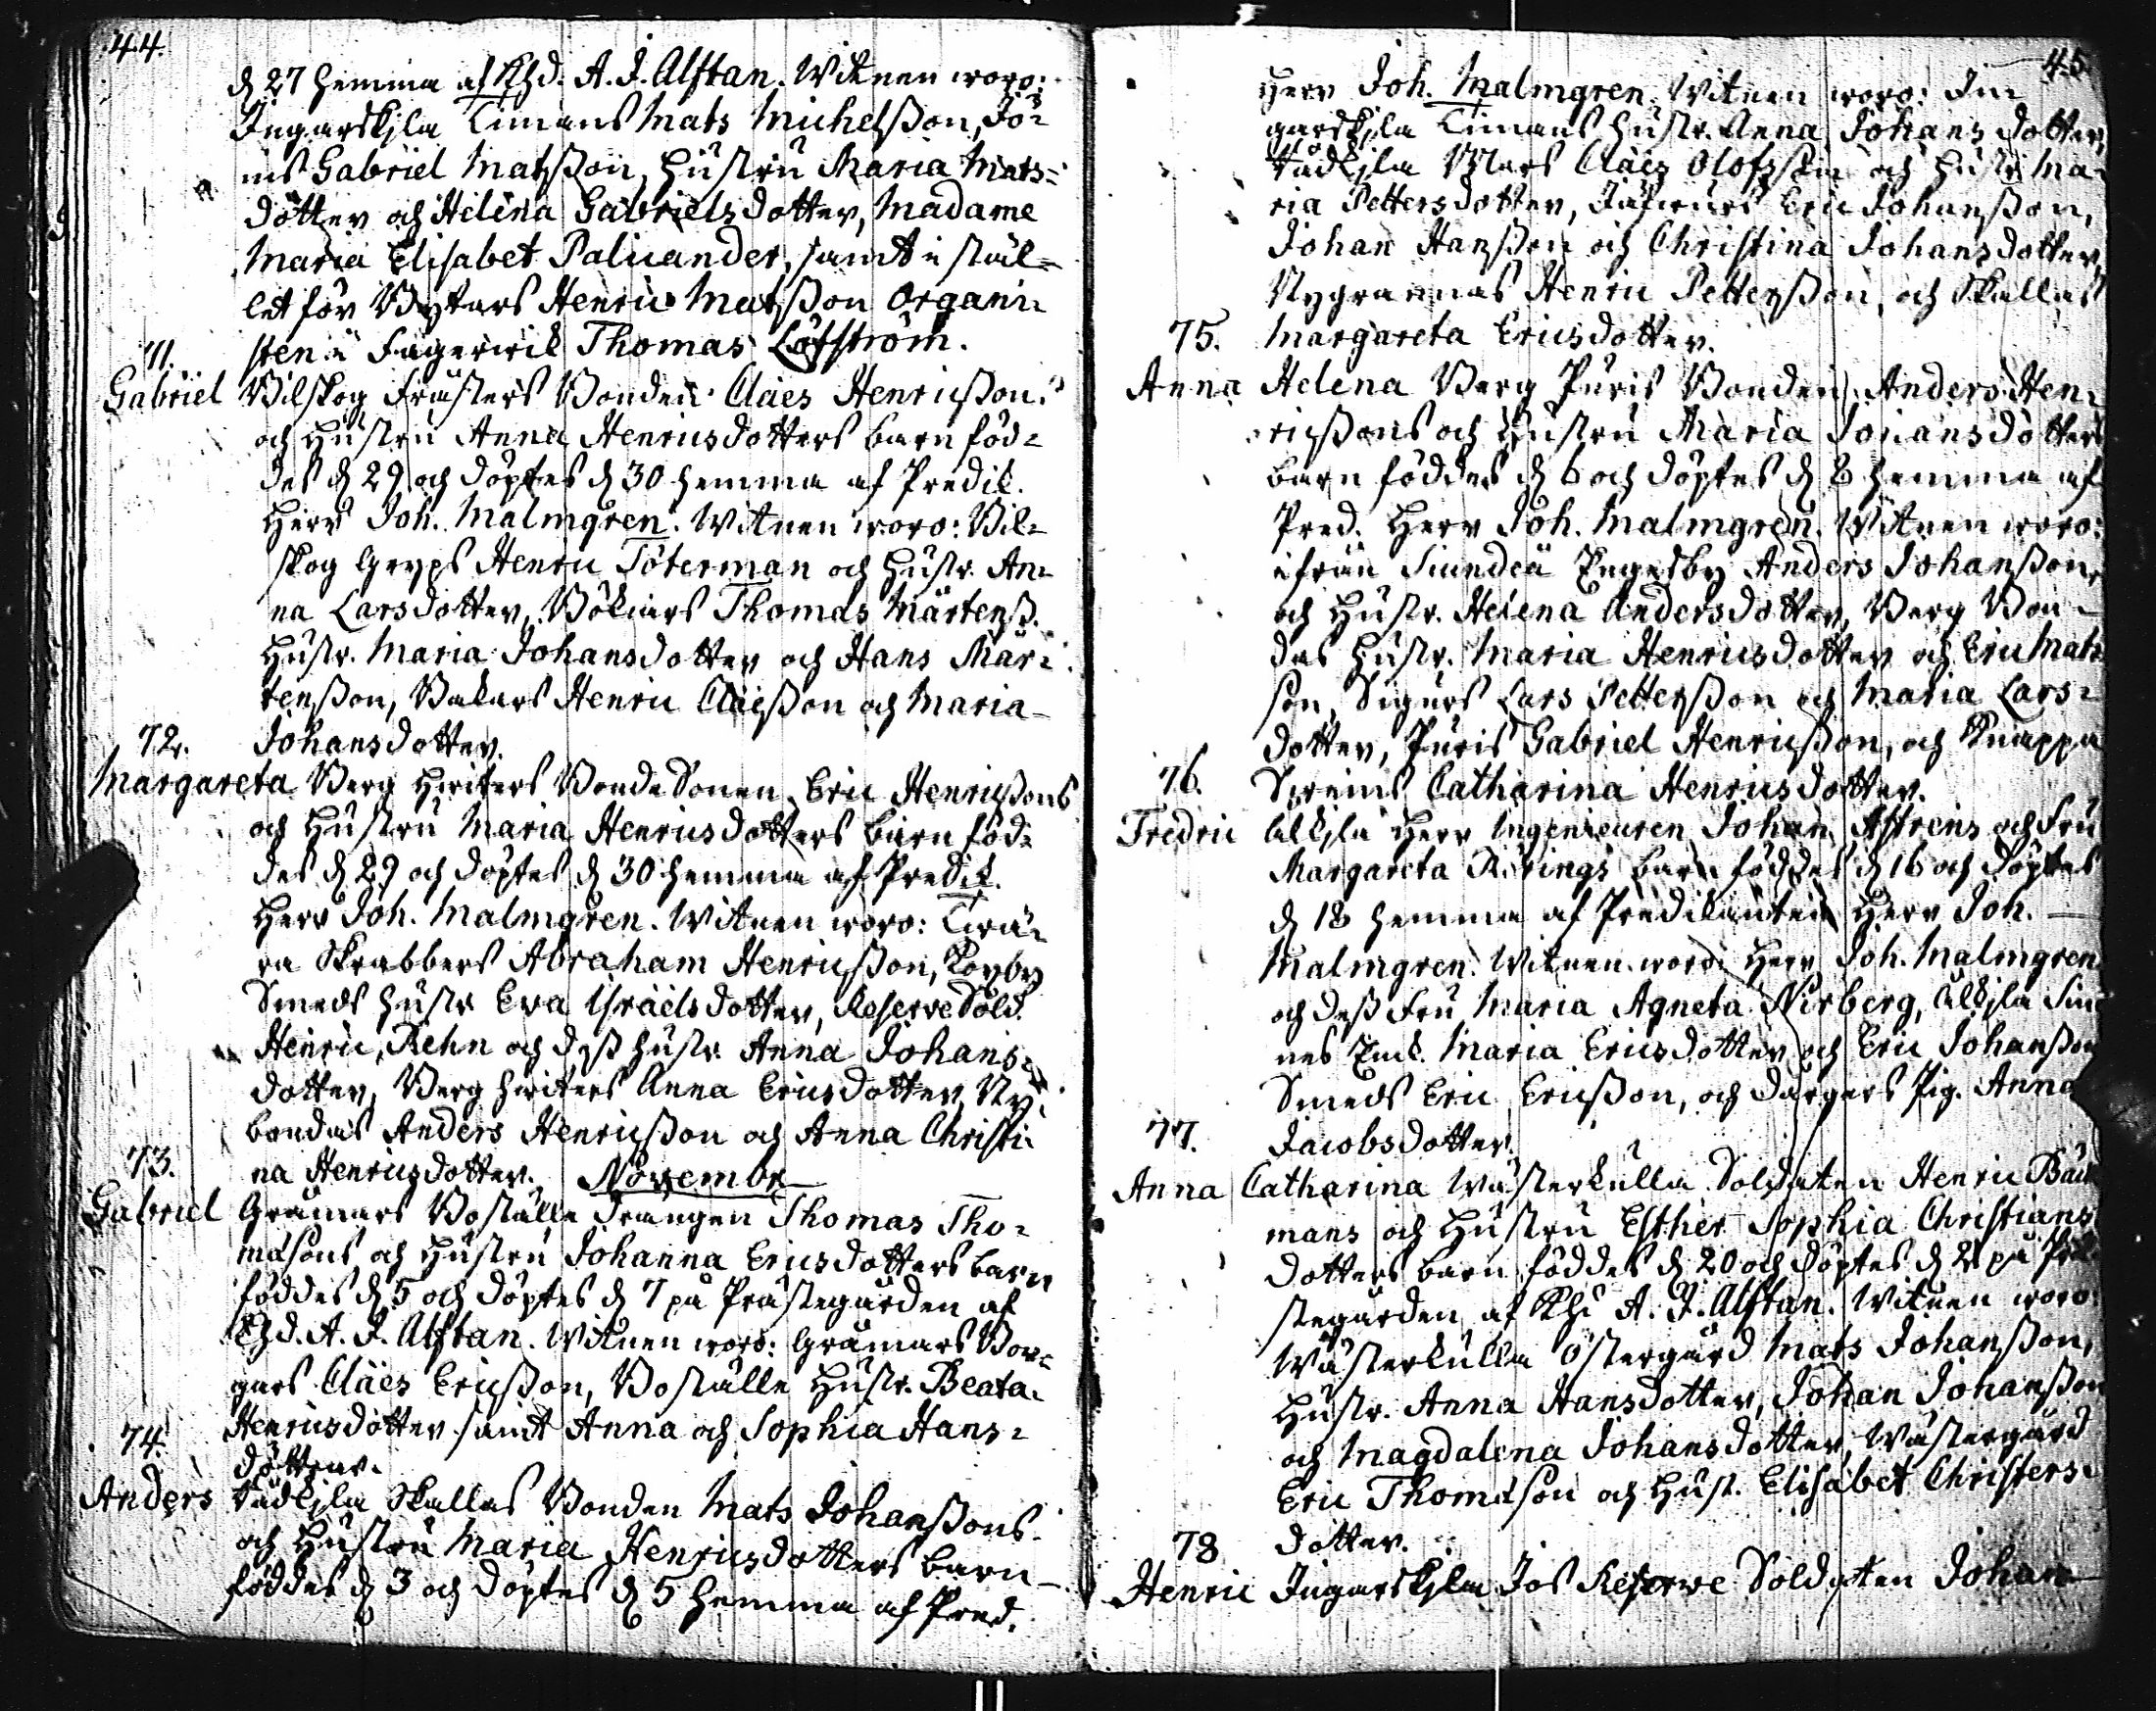 44.
d 27 hemma af Khd. A. J. Alftan. Witnen woro:
Ingarskjla Timans Mats Michelsson, Jö-
ins Gabriel Matsson, Hustru Maria Mats-
dotter och Helena Gabrielsdotter, Madame
Maria Elisabet Paliander, samt i stäl-
let för Bytars Henric Matsson Organi-
sten i Fagerwik Thomas Löfström.
71.
Gabriel Bilskog Frästers Bonden Claes Henricssons
och Hustru Anna Henricsdotters barn föd-
des d 29 och döptes d 30 hemma af Predik.
Herr Joh. Malmgren. Witnen woro: Bil-
skog Gryps Henric Töterman och Hustr. An-
na Larsdotter, Bökars Thomas Mårtenss.
Hustr. Maria Johansdotter och Hans Mår-
tensson, Bakars Henric Claesson och Maria
72. Johansdotter.
Margareta Berg Hwiters BondeSonen Eric Henricssons
och Hustru Maria Henricsdotters barn föd-
des d 29 och döptes d 30 hemma af Predik.
Herr Joh. Malmgren. Witnen woro: Twä-
ra Skrabbers Abraham Henricsson,
Smeds Hustr. Eva Israelsdotter, Reserve Sold.
Henric Rehn och dess Hustr. Anna Johans-
dotter, Berg Hwiters Anna Ericsdotter, Ny-
bondas Anders Henricsson och Anna Christi-
73. na Henricsdotter. Novembr
Gabriel Gråmars Boställe Drängen Thomas Tho-
massons och Hustru Johanna Ericsdotters barn
föddes d 5 och döptes d 7 på Prästegården af
Khd. A. J. Alftan. Witnen woro: Gråmars Bor-
gars Claes Ericsson, Boställe Hustr. Beata
Henricsdotter samt Anna och Sophia Hans-
74. döttrar.
Anders Wädkjla Skallas Bonden Mats Johanssons
och Hustru Maria Henricsdotters barn
föddes d 3 och döptes d 5 hemma af Pred.
45
Herr Joh. Malmgren. Witnen woro: In-
garskjla Timans Hustr. Anna Johansdotter,
Wädkjla Mars Claes Olofsson och Hustr. Ma-
ria Pettersdotter, Eric Johansson,
Johan Hansson och Christina Johansdotter,
Nygrannas Henric Pettersson, och Skallas
75. Margareta Ericsdotter.
Anna Helena Berg Puris Bonden Anders Hen-
ricssons och Hustru Maria Johansdotters
barn föddes d 6 och döptes d 8 hemma af
Pred. Herr Joh. Malmgren. Witnen woro:
ifrån Siundeå Engesby Anders Johansson,
och Hustr. Helena Andersdotter, Berg Bon-
das Hustr. Maria Henricsdotter och Eric Mats-
son, Sigurs Lars Pettersson och Maria Lars-
dotter, Puris Gabriel Henricsson, och Knappa
76. Catharina Henricsdotter.
Fredric Älkjla Herr Ingenieuren Johan Astrens och Fru
Margareta barn föddes d 16 och döptes
d 18 hemma af Predikanten Herr Joh.
Malmgren. Witnen woro: Herr Joh. Malmgren
och dess Fru Maria Agneta Nirberg, Älkjla
Maria Ericsdotter och Eric Johansson
Smeds Eric Ericsson, och Dargars Pig. Anna
77. Jacobsdotter.
Anna Catharina Wästerkulla Soldaten Henric Bäck
mans och Hustru Esther Sophia Christians
dotters barn föddes d 20 och döptes d 21 på Prä-
stegården af Khd A. J. Alftan. Witnen woro:
Wästerkulla Östergård Mats Johansson,
Hustr. Anna Hansdotter, Johan Johansson
och Magdalena Johansdotter, Wästergård
Eric Thomasson och Hust. Elisabet Christers-
78 dotter.
Henric Ingarskjla Jos Reserve Soldaten Johan